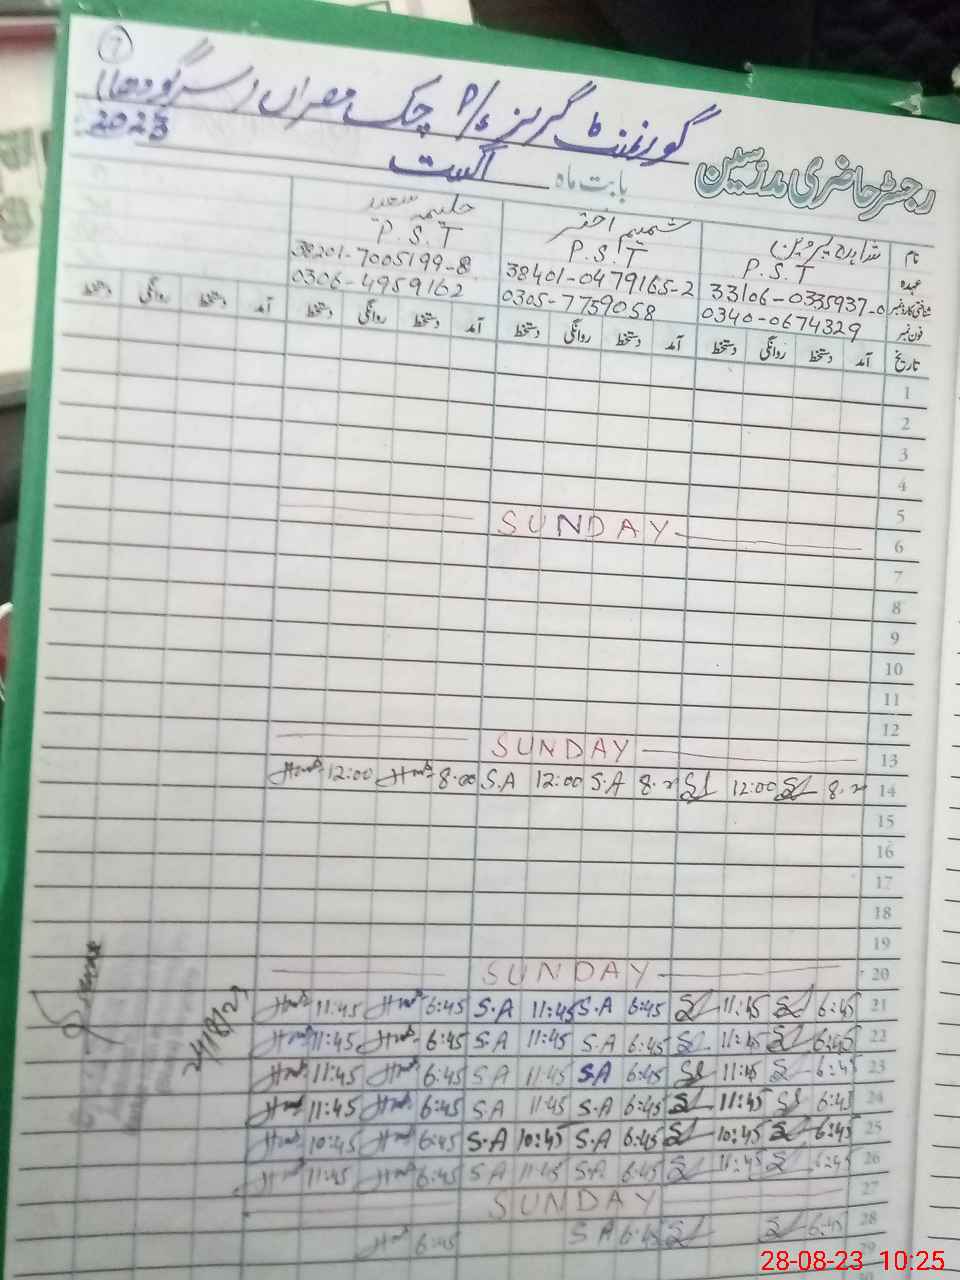 7
گورنمنٹ گرلز P/S چک مصراں سرگودھا
2023
رجسٹر حاضری مدرسین بابت ماہ اگست
نام شاہدہ پروین شمیم اختر حلیمہ سعید
عہدہ P.S.T P.S.T P.S.T
شناختی کارڈ نمبر 33106-0335937-0 38401-0479165-2 38201-7005199-8
فون نمبر 0340-0674329 0305-7759058 0306-4959162
تاریخ آمد دستخط روانگی دستخط آمد دستخط روانگی دستخط آمد دستخط روانگی دستخط آمد دستخط روانگی دستخط
1
2
3
4
5
SUNDAY 6
7
8
9
10
11
12
SUNDAY 13
12:00 8.00 S.A 12:00 S.A 12:00 14
15
16
17
18
19
SUNDAY 20
11:45 6:45 S.A 11:45 S.A 6:45 11:45 6:45 21
11:45 6:45 S.A 11:45 S.A 6:45 11:45 6:45 22
11:45 6:45 S.A 11:45 S.A 6:45 11:45 6:45 23
11:45 6:45 S.A 11:45 S.A 6:45 11:45 6:45 24
10:45 6:45 S.A 10:45 S.A 6:45 10:45 6:45 25
11:45 6:45 S.A 11:45 S.A 6:45 11:45 6:45 26
SUNDAY 27
6:45 S A 6:45 6:45 28
29
24/8/23
28-08-23 10:25